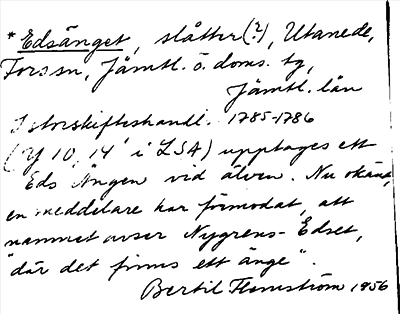 * Edsänget, slåtter(?), Utanede,
Fors sn, Jämtl. ö. doms. tg,
Jämtl. län
I storskifteshandl. 1785-1786
(Y 10, 14' i LSA) upptages ett
Eds Ängen vid älven. Nu okänt,
en meddelare har förmodat, att
namnet avser Nygrens-Edset,
"där det finns ett änge".
Bertil Flemström 1956